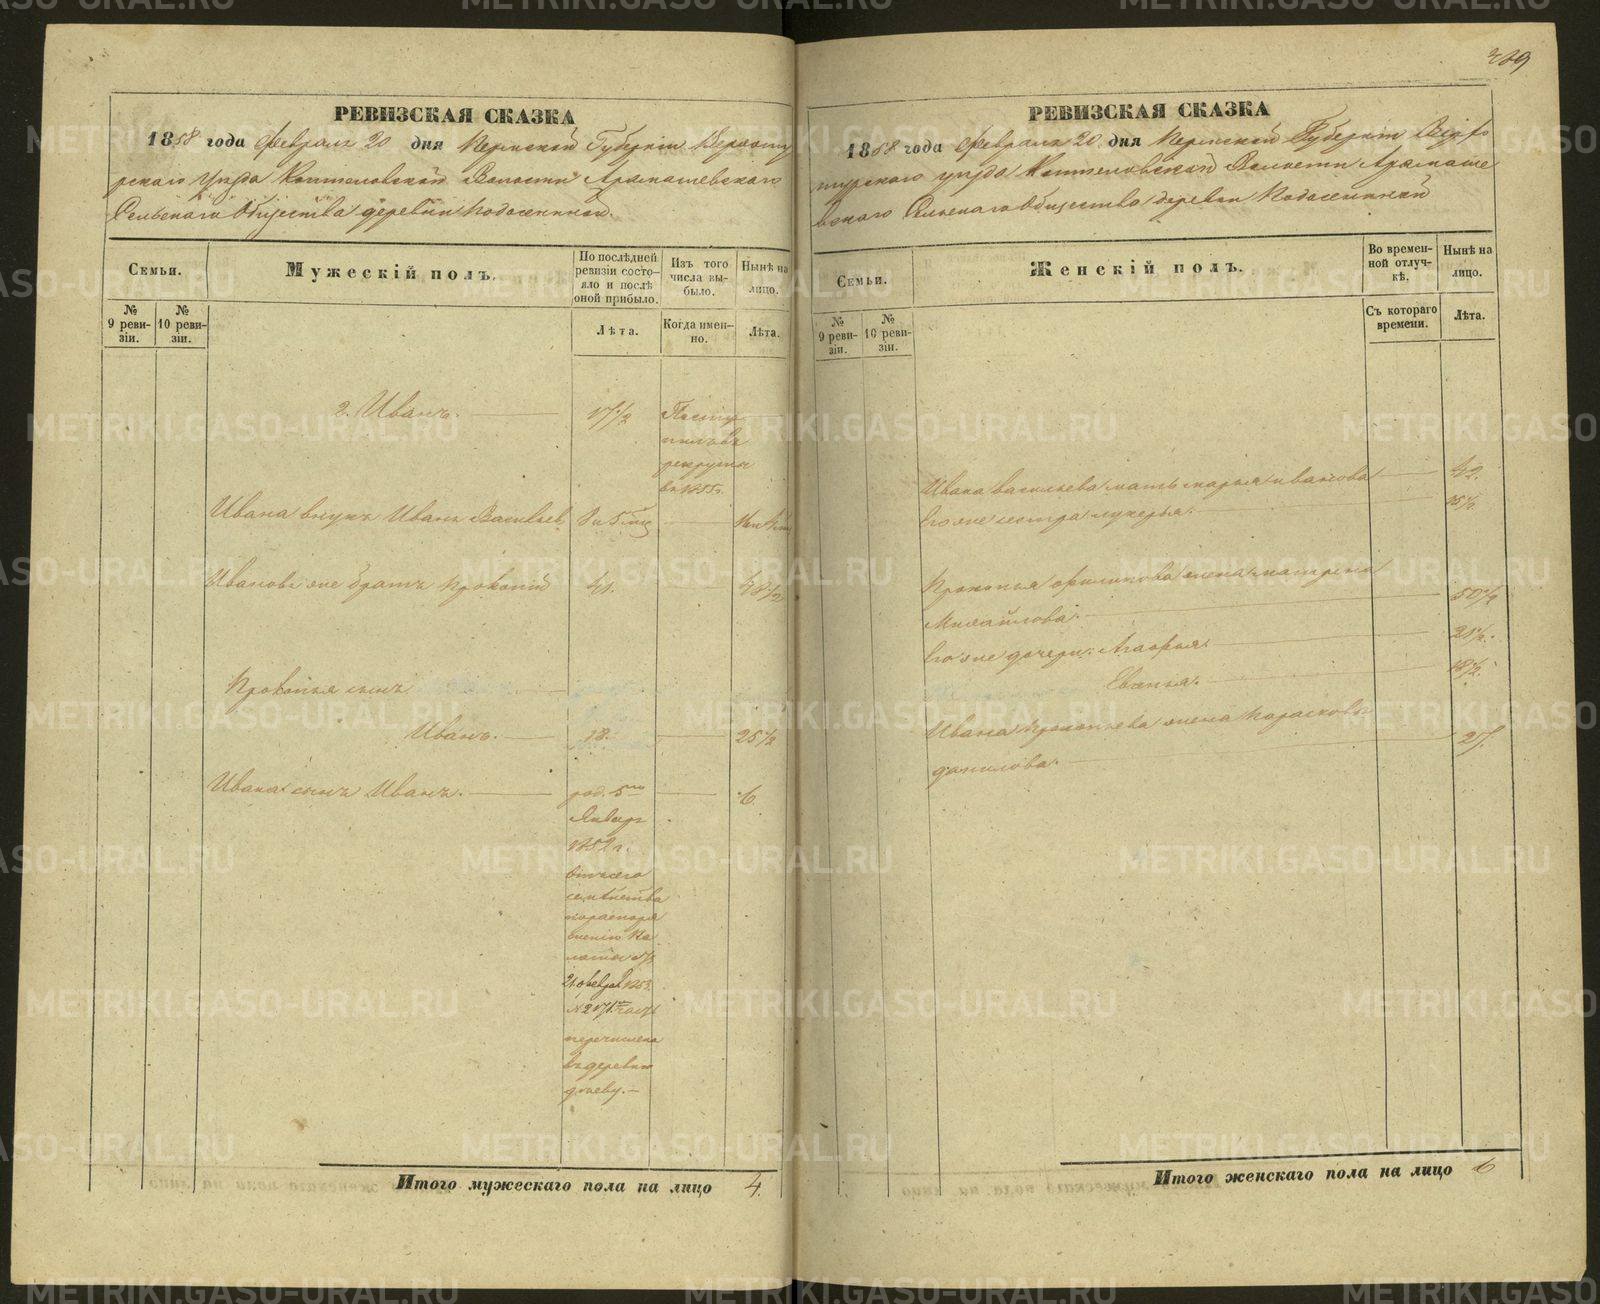 РЕВИЗСКАЯ СКАЗКА
1858 года Февраля 20 дня Пермской Губернiи Верхоту
рскаго уѣзда Коптеловской Волости Арамашевскаго
Сельскаго Общества деревни
Семьи.
Мужескiй полъ.
По послѣдней ревизiи состо-
яло и послѣ
оной прибыло.
Изъ того
числа вы-
было.
Нынѣ на
лицо.
№
9 реви-
зiи.
№
10 реви-
зiи.
Лѣта.
Когда имен-
но.
Лѣта.
2. Иванъ. 17 1/2
Посту
пилъ въ
рекруты
въ 1855 г.
Ивана внукъ Иванъ Васильев
Ивановъ же братъ Прокопiй 41. 48 1/2
Прокопья сынъ
Иванъ. 18. 25 1/2
Ивана сынъ Иванъ. род. 5го 6
Январ
1852 г.
семѣйства
21 Феврал 1853.
перечислена
въ деревню
Итого мужескаго пола на лицо 4.
439
РЕВИЗСКАЯ СКАЗКА
1858 года Февраля 20 дня Пермской Губернiи Верхо
турскаго уѣзда Коптеловской Волости Арамаше
вскаго Сельскаго Общества деревни
Семьи.
Женскiй полъ.
Во времен-
ной отлуч-
кѣ.
Нынѣ на
лицо.
№
9 реви-
зiи.
№
10 реви-
зiи.
Съ котораго
времени.
Лѣта.
Ивана Васильева мать Марья Иванова 42.
Его же сестра Лукерья.
Прокопья Филипова жена Матрена
Михайлова. 50 1/2
Его же дочери: Агафья 21 1/2.
18 1/2.
Ивана Прокопьева жена Парасковья
Данилова. 27.
Итого женскаго пола на лицо 6
METRIKI.GASO-URAL.RU